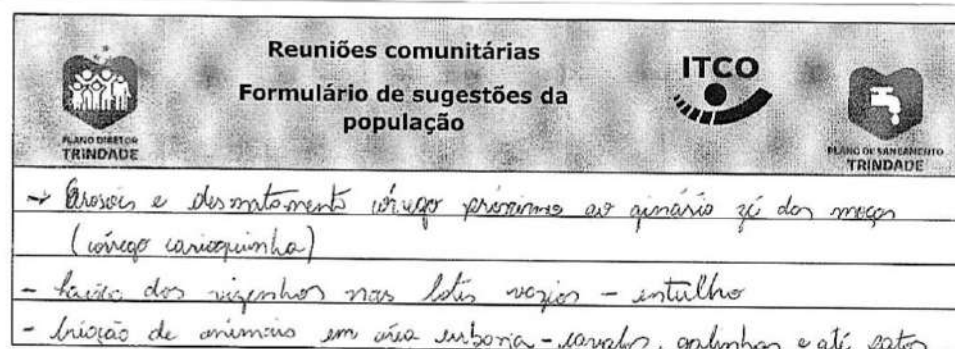 Reuniões comunitárias
Formulário de sugestões da
população
ITCO
PLANO DIRETOR
TRINDADE
PLANO DE SANEAMENTO
TRINDADE
→ Erosões e desmatamento córrego próximo ao ginásio zé das moças
(córrego carioquinha)
- dos vizinhos nos lotes vazios - entulho
- Criação de animais em área urbana - cavalos, galinhas e até patos